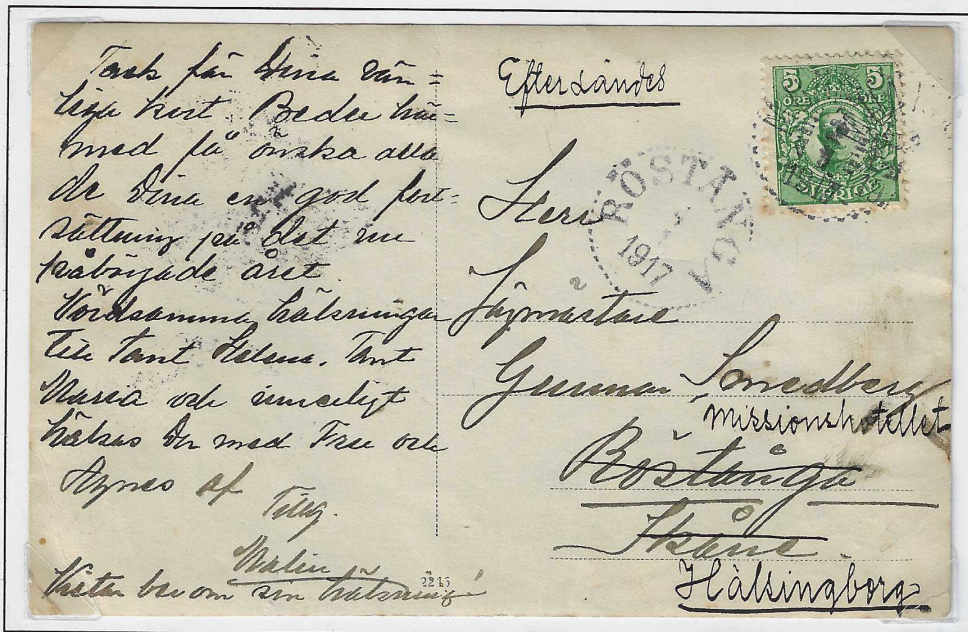 Tack för Dina vän=
liga kort. Beder här=
med få önska alla
de Dina en god fort=
sättning på det nu
påbörjade året.
Vördsamma hälsningar
till Tant Helena, Tant
Maria och innerligt
hälsas Du med Fru och
Agnes af
Tilly.
Malin
ber om sin hälsning
2215
Eftersändes
5 5
ÖRE
SVERIGE
RÖSTÅNGA
1917
Herr
Jägmästare
Gunnar Smedberg
Missionshotellet
Röstånga
Skåne.
Hälsingborg.